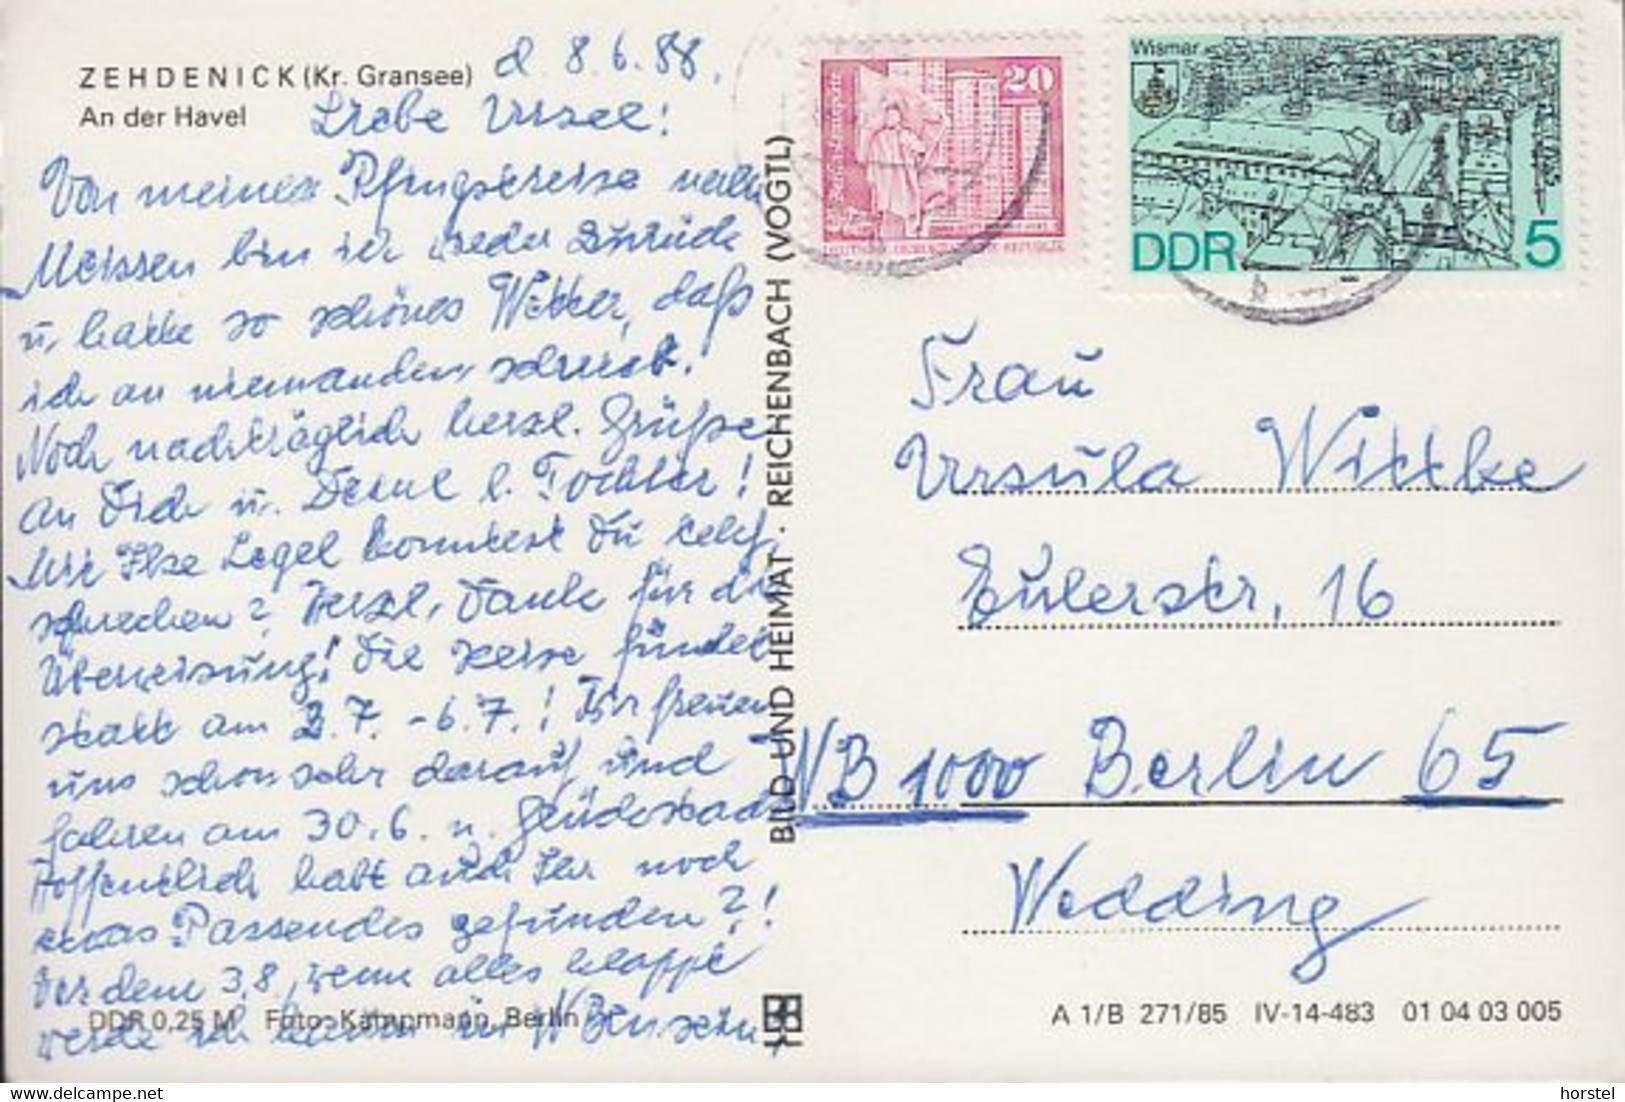 ZEHDENICK (Kr. Gransee)
An der Havel
d. 8.6.88.
Liebe Ursel!
Von meiner Pfingstreise nach
Meissen bin ich wieder zurück
u. hatte so schönes Wetter, daß
ich an niemanden schrieb!
Noch nachträglich herzl. Grüße
an Dich u. Deine l. Tochter!
Mit Ilse Legel konntest Du telef.
sprechen? Herzl. Dank für die
Überweisung! Die Reise findet
statt am 3.7. - 6.7.! Wir freuen
uns schon sehr darauf und
fahren am 30.6. n.
Hoffentlich habt auch Ihr noch
etwas Passendes gefunden?!
Vor dem 3.8., wenn alles klappt
werde ich in W Bln sein!
DDR 0,25 M Foto: Kampmann, Berlin
BILD UND HEIMAT · REICHENBACH (VOGTL)
20
DEUTSCHE DEMOKRATISCHE REPUBLIK
Wismar
DDR 5
Frau
Ursula Wittke
Eulerstr. 16
WB 1000 Berlin 65
Wedding
A 1/B 271/85 IV-14-483 01 04 03 005
horstel